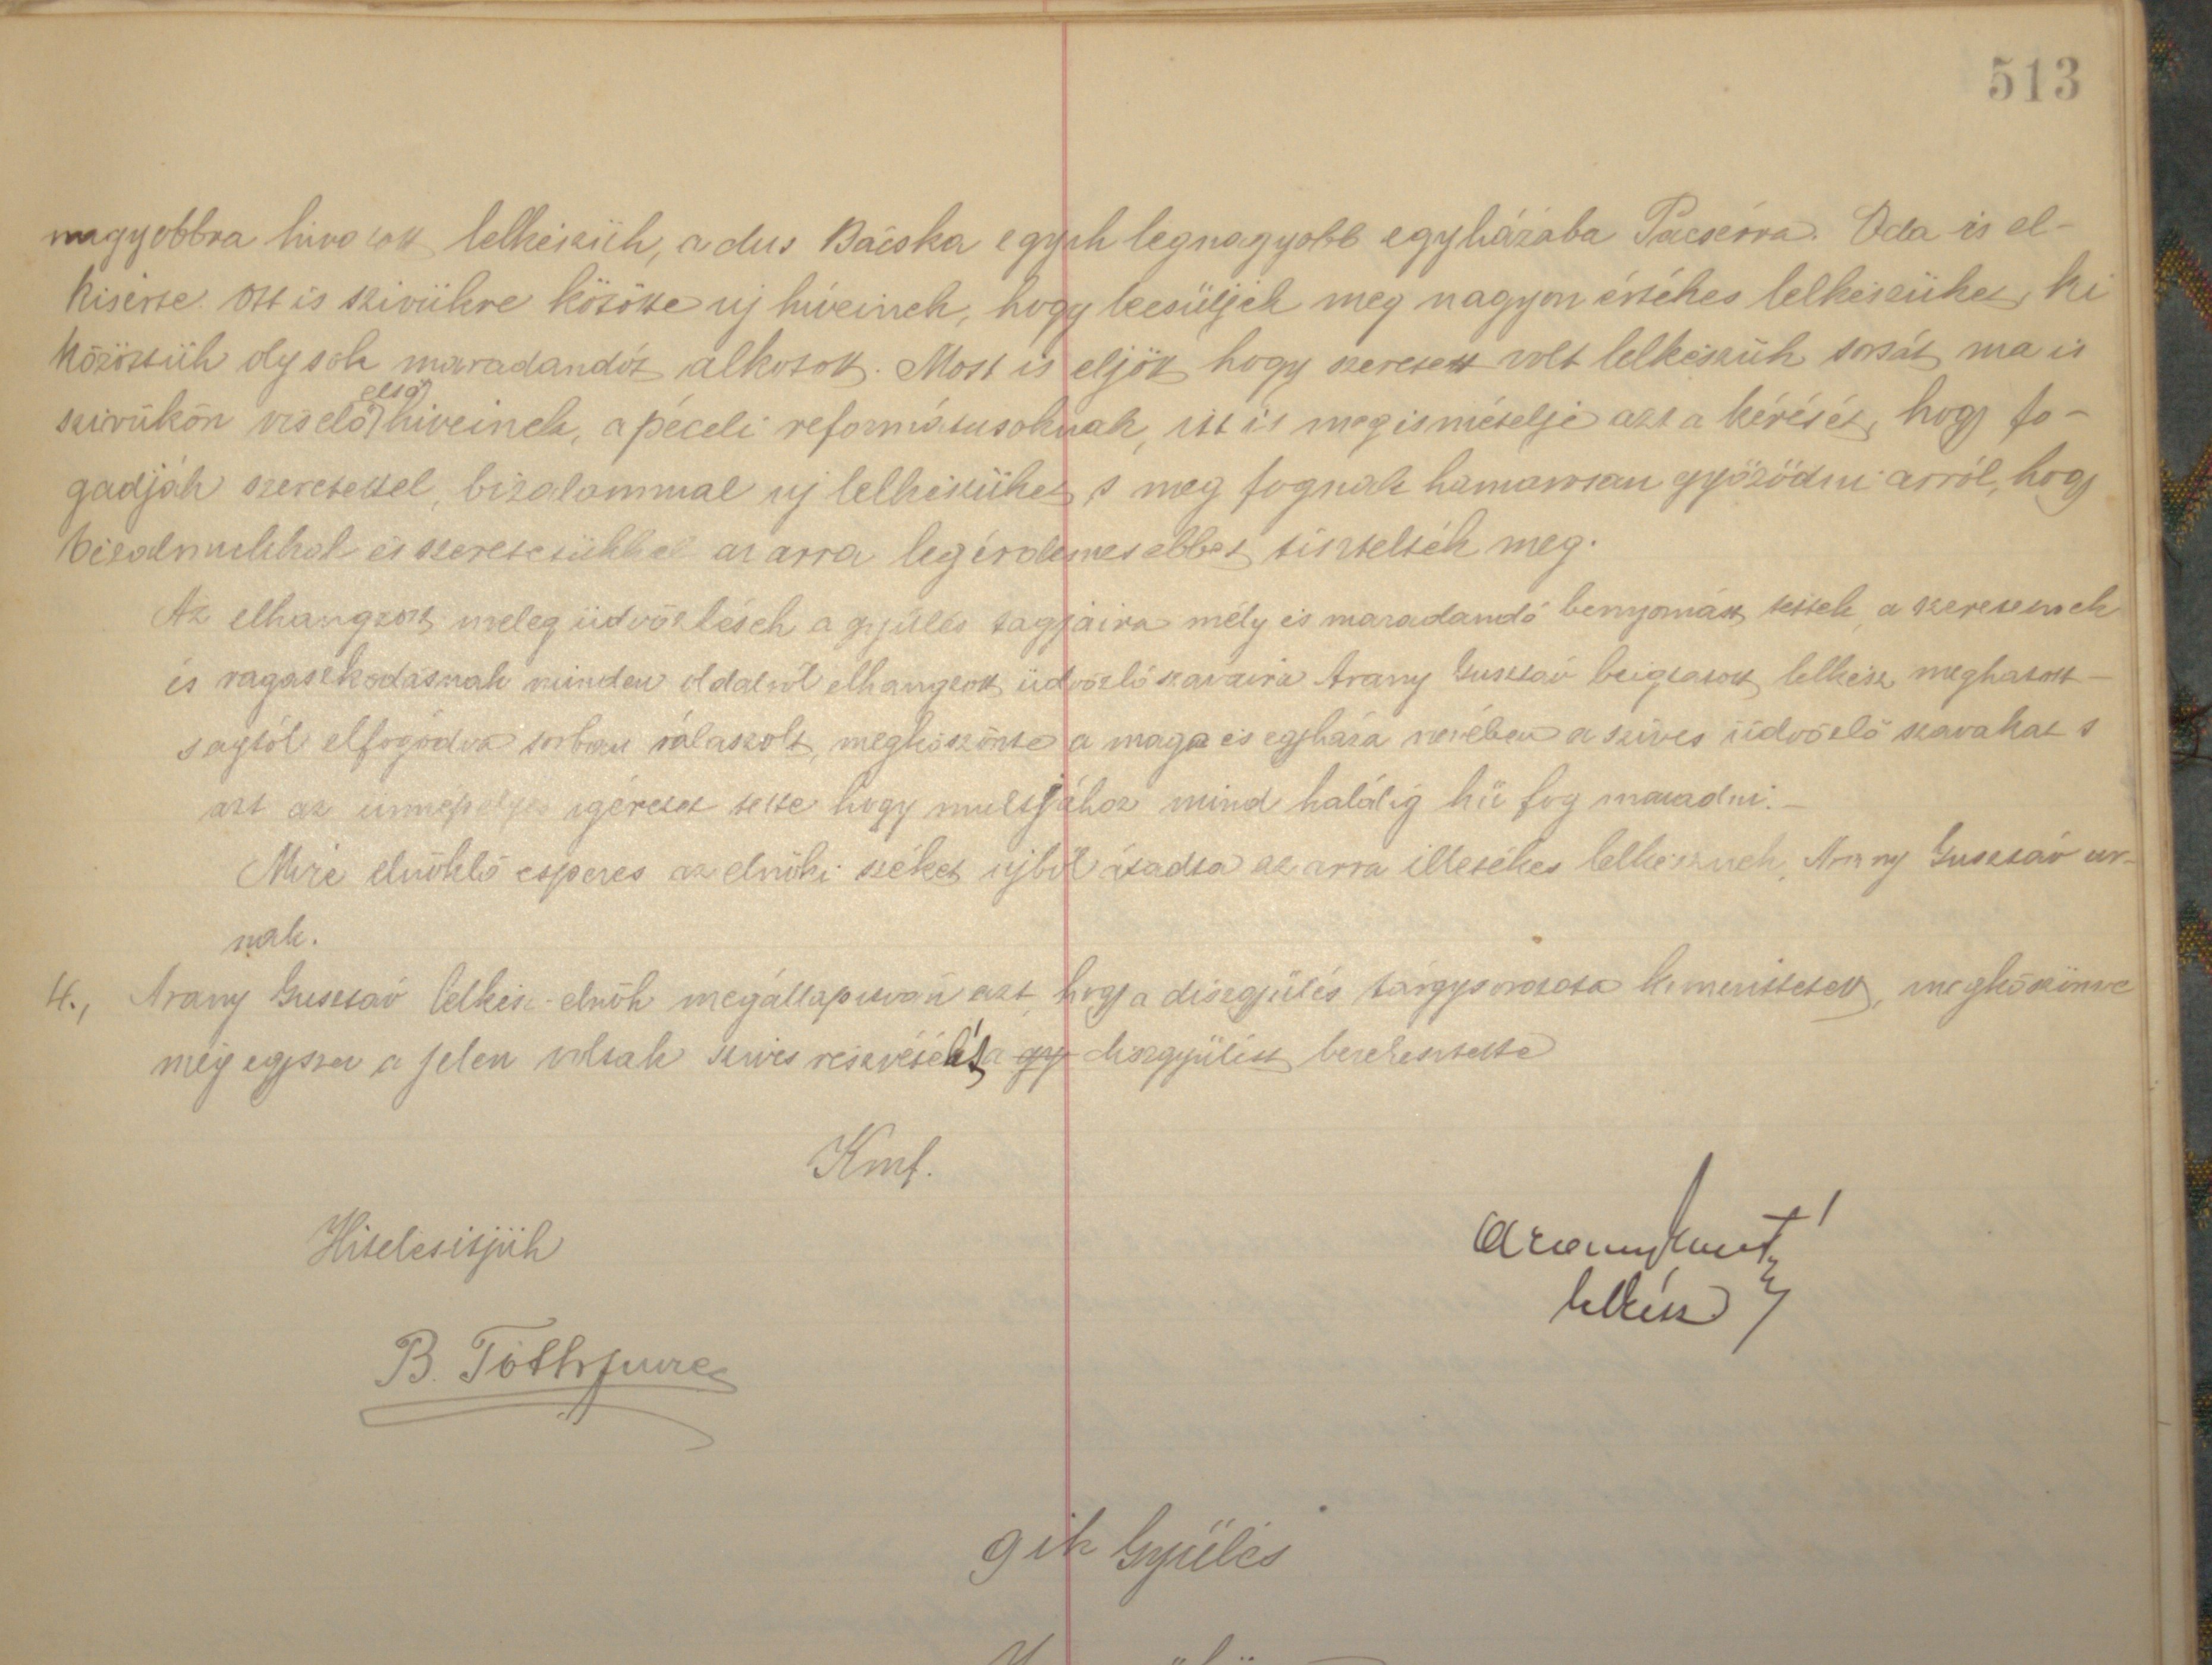 513
nagyobbra hivatott lelkészük, a dus Bácska egyik legnagyobb egyházába Pacsérra. Oda is el-
kisérte. Ott is szivükre kötötte uj híveinek, hogy becsüljék meg nagyon értékes lelkészüket, ki
közöttük oly sok maradandót alkotott. Most is eljött hogy szeretett volt lelkészük sorsát ma is
szivükön viselő első híveinek, a péceli reformátusoknak, itt is megismételje azt a kérését, hogy fo-
gadják szeretettel, bizalommal uj lelkészüket s meg fognak hamarosan győződni arról, hogy
bizalmukkal és szeretetükkel az arra legérdemesebbet tisztelték meg.
Az elhangzott meleg üdvözlések a gyülés tagjaira mély és maradandó benyomást tettek, a szeretetnek
és ragaszkodásnak minden oldalról elhangzott üdvözlő szavaira Arany Gusztáv beigtatott lelkész meghatott-
ságtól elfogódva sorban válaszolt, megköszönte a maga és egyháza nevében a szives üdvözlő szavakat s
azt az ünnepélyes igéretet tette hogy multjához mind halálig hű fog maradni.-
Mire elnöklő esperes az elnöki széket ujból átadta az arra illetékes lelkésznek, Arany Gusztáv ur-
nak.
4., Arany Gusztáv lelkész-elnök megállapitván azt, hogy a diszgyülés tárgysorozata kimerittetett, megköszönve
még egyszer a jelen voltak szives részvételét a gy diszgyülést berekesztette
Kmf.
Hitelesitjük
Arany Gusztáv
lelkész
B. Tóth Imre
9ik Gyülés